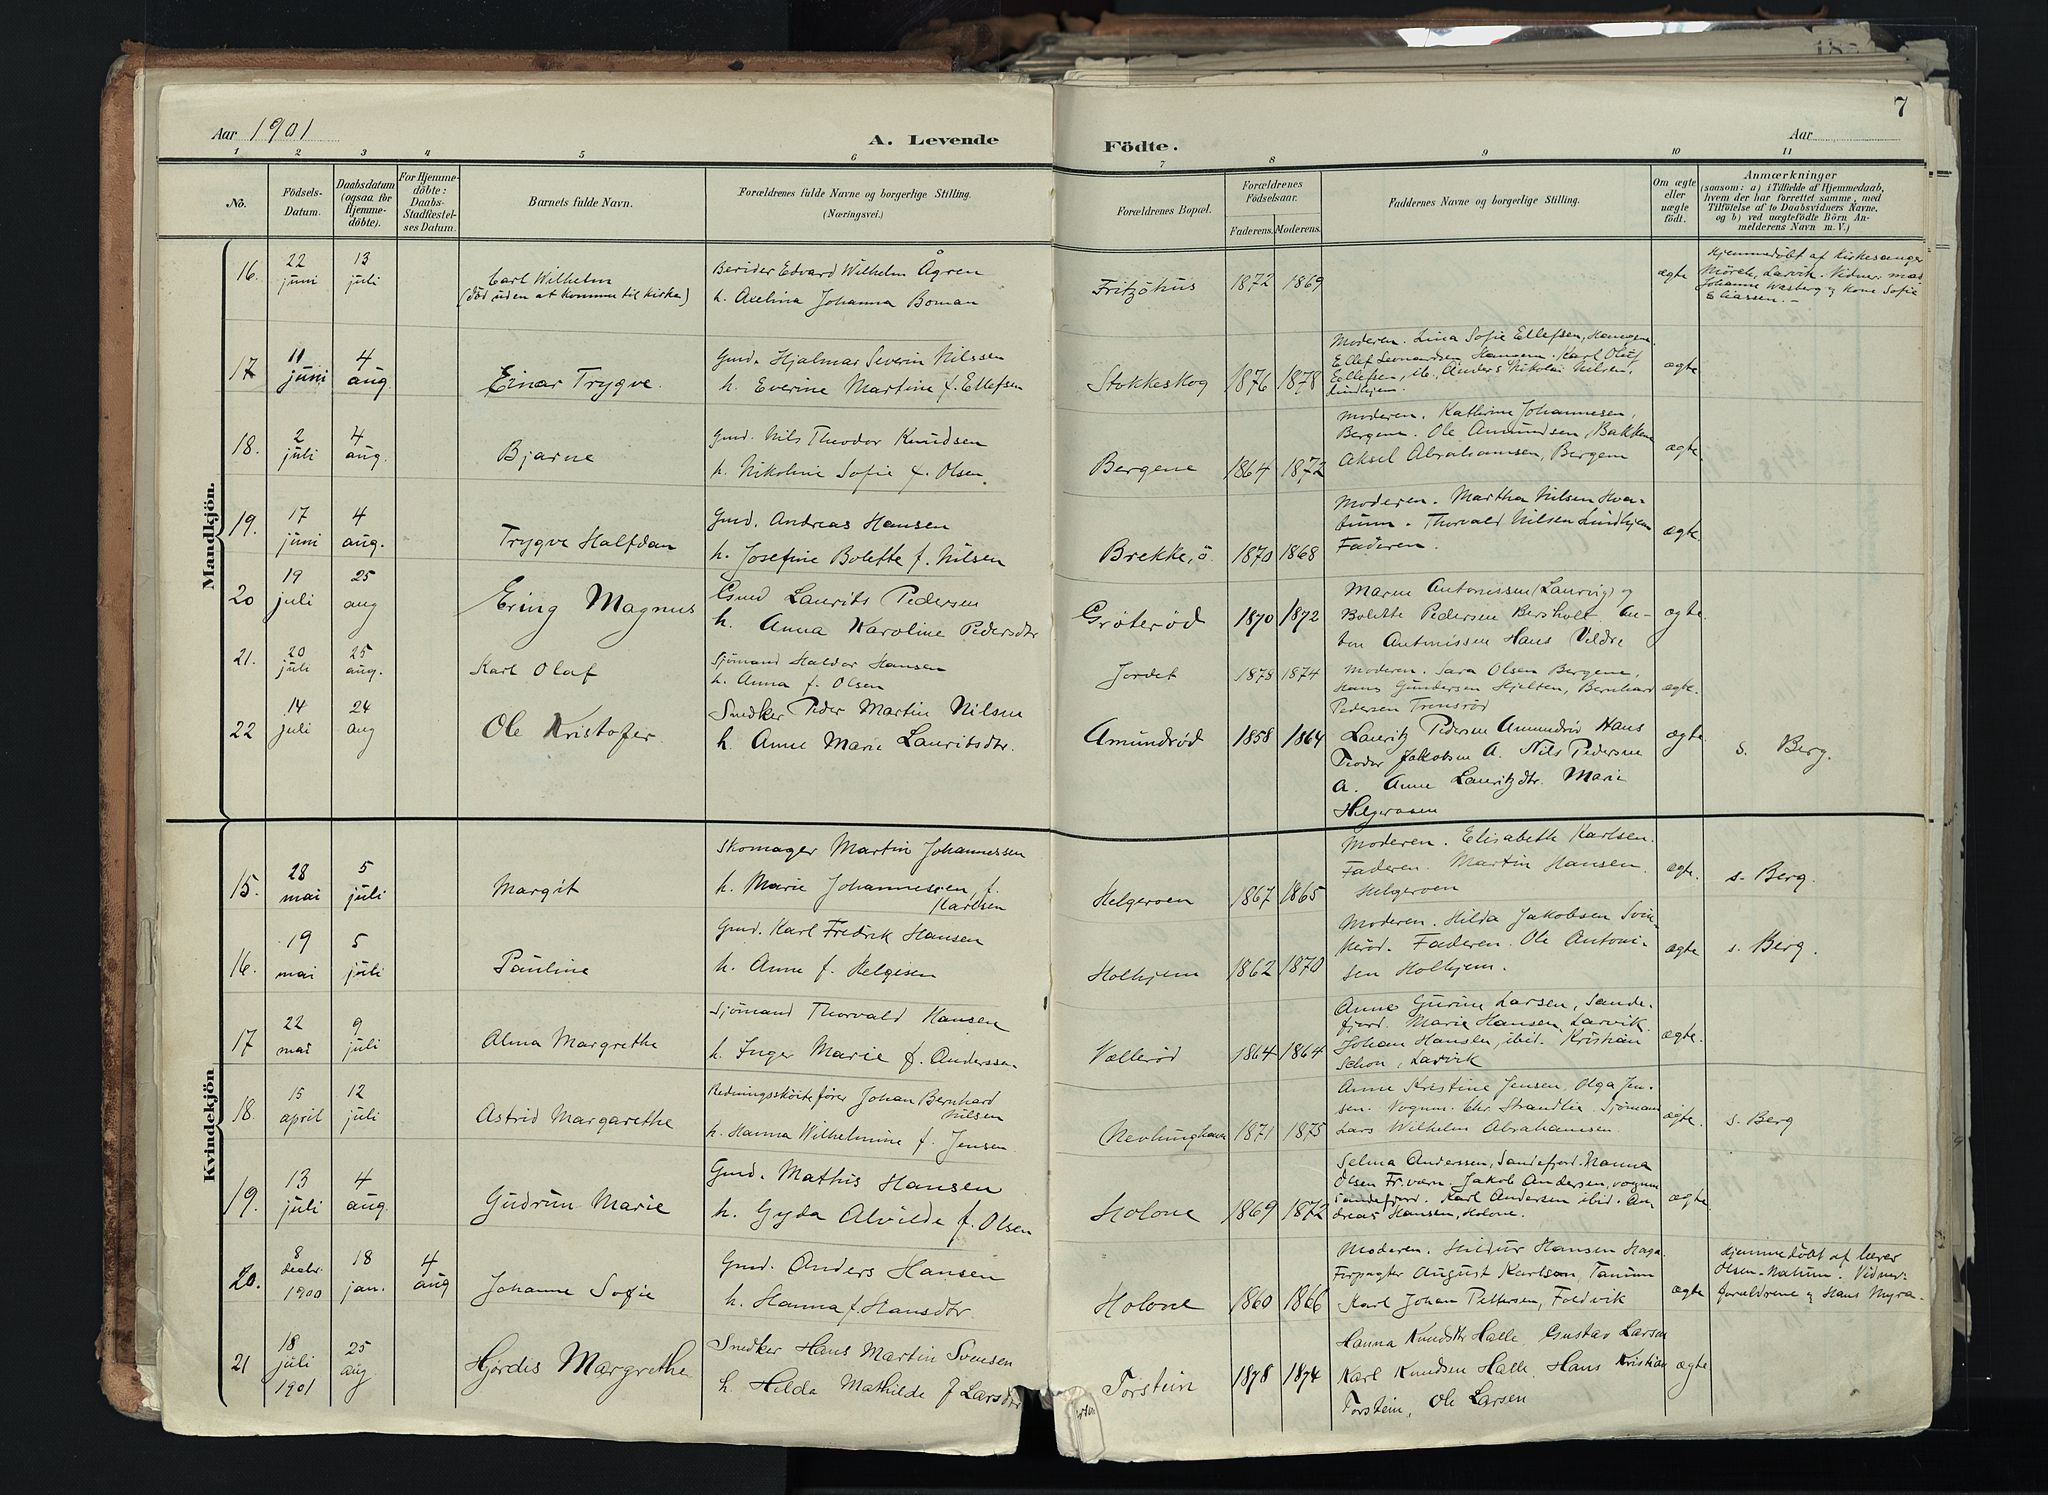 Aar 1901
A. Levende
Födte.
Aar
7
1 2 3 4 5 6 7 8 9 10 11
No.
Födsels-
Datum.
Daabsdatum
(ogsaa for
Hjemme-
döbte).
For Hjemme-
döbte:
Daabs-
Stadfæstel-
ses Datum.
Barnets fulde Navn.
Forældrenes fulde Navne og borgerlige Stilling.
(Næringsvei.)
Forældrenes Bopæl.
Forældrenes
Födselsaar.
Faderens. Moderens.
Faddernes Navne og borgerlige Stilling.
Om ægte
eller
uægte
født.
Anmærkninger
(saasom: a) i Tilfælde af Hjemmedaab,
hvem der har forrettet samme, med
Tilföielse af to Daabsvidners Navne,
og b) ved uægtefödte Börn An-
melderens Navn m. V.)
Mandkjön.
16. 22 juni 13 juli
Carl Wilhelm
(död uden at komme til kirke)
Berider Edvard Wilhelm Ågren
h. Axelina Johanna Boman
Fritzöhus 1872 1869 ægte
Hjemmedöbt af Kirkesanger
Mörch, Larvik. Vidner:
Johanne Wasberg og Kone Sofie
Eliassen. -
17. 11 juni 4 aug.
Einar Trygve.
Gmd. Hjalmar Severin Nilssen
h. Everine Martine f. Ellefsen
Stokkeskog 1876 1878
Moderen. Lina Sofie Ellefsen,
Ellef Leonardsen Hansem. Karl Oluf
Ellefsen, ib., Anders Nikolai Nilsen,
Lindhjem.
ægte
18. 2 juli 4 aug.
Bjarne
Gmd. Nils Theodor Knudsen
h. Nikoline Sofie f. Olsen.
Bergene 1864 1872
Moderen. Kathrine Johannesen,
Bergene. Ole Amundsen, Bakkene
Aksel Abrahamsen, Bergene
ægte
19. 17 juni 4 aug.
Trygve Halfdan
Gmd. Andreas Hansen
h. Josefine Bolette f. Nilsen
Brekke, ö. 1870 1868
Moderen. Martha Nilsen Hva-
tum. Thorvald Nilsen Lindhjem
Faderen.
ægte
20 19 juli 25 aug
Ering Magnus
Gmd Laurits Pedersen
h. Anna Karoline Pedersdtr
Gröteröd 1870 1872
Maren Antonissen (Laurvig) og
Bolette Pedersen Bersholt. An-
ton Antonissen Hans Vildre
ægte
21. 20 juli 25 aug.
Karl Olaf
Sjömand Haldor Hansen
h. Anna f. Olsen
Jordet 1878 1874
Moderen. Sara Olsen Bergene,
Hans Gundersen Hjelten, Bernhard
Pedersen Tronsröd
ægte.
22 14 juli 24 aug
Ole Kristofer
Snedker Peder Martin Nilsen
h. Anne Marie Lauritsdtr.
Amundröd 1858 1864
Lauritz Pedersen Amundröd Hans
Teodor Jakobsen A. Nils Pedersen
A. Anne Lauritzdtr. Marie
Helgeroen
ægte
s. Berg.
Kvindekjön
15. 28 mai 5 juli
Margit
Skomager Martin Johannessen
h. Marie Johannessen, f.
Karlsen
Helgeroen 1867 1865
Moderen. Elisabeth Karlsen.
Faderen. Martin Hansen.
Helgeroen
ægte.
s. Berg.
16. 19 mai 5 juli
Pauline
Gmd. Karl Fredrik Hansen
h. Anne f. Helgesen
Holhjem 1862 1870
Moderen. Hilda Jakobsen Svin-
keröd. Faderen. Ole Antoni-
sen Holhjem.
ægte
s. Berg.
17 22 mai 9 juli
Alma Margrethe
Sjömand Thorvald Hansen
h. Inger Marie f. Anderssen.
Vælleröd 1864 1864
Anne Gurine Larsen, Sande-
fjord. Marie Hansen, Larvik.
Johan Hansen, ibid. Kristian
Schou, Larvik
ægte.
18. 15 april 12 juli
Astrid Margarethe
Redningssköitefører Johan Bernhard
Nilsen
h. Hanna Wilhelmine f. Jensen
Nevlunghavn 1871 1875
Anne Kristine Jensen, Olga Jen-
sen. Vognm. Chr. Strandlie. Sjömand
Lars Wilhelm Abrahamsen.
ægte.
s. Berg
19. 13 juli 4 aug.
Gudrun Marie
Gmd. Mathis Hansen
h. Gyda Alvilde f. Olsen
Holone 1869 1872
Selma Anderssen, Sandefjord. Hanna
Olsen Fr.værn. Jakob Andersen, vognm
Sandefjord. Karl Andersen ibid. An-
dreas Hansen, Holone.
ægte
20. 8 decbr. 1900 18 jan. 4 aug
Johanne Sofie
Gmd. Anders Hansen
h. Hanna f. Hansdtr.
Holone 1860 1866
Moderen. Hildur Hansen Haga.
Forpagter August Karlson, Tanum
Karl Johan Pettersen, Foldvik
ægte
Hjemmedöbt af lærer
Olsen-Natum. Vidner:
forældrene og Hans Myra.
21 18 juli 1901 25 aug
Hjördis Margrethe
Snedker Hans Martin Svensen
h. Hilda Mathilde f Larsdtr
Torstein 1878 1874
Hanna Knudsdtr Halle Gustav Larsen
Karl Knudsen Halle. Hans Kristian
Torstein, Ole Larsen
ægte